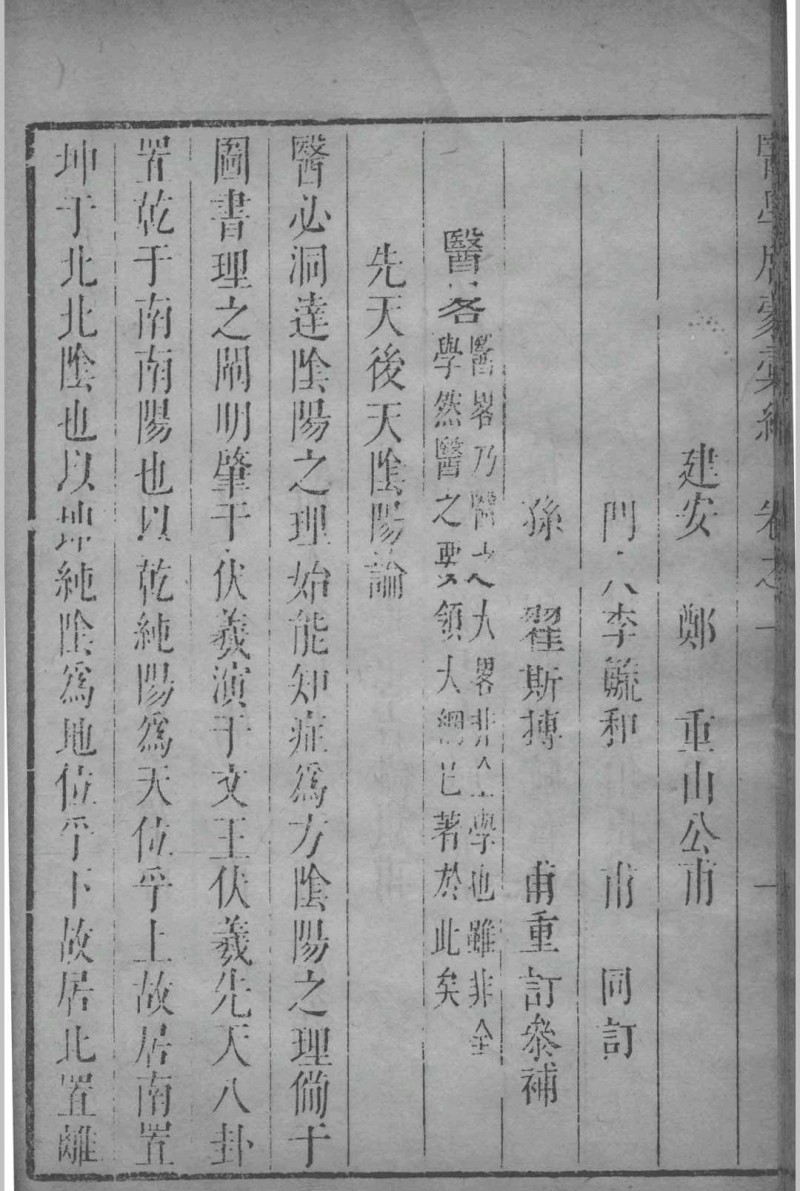 醫學啟蒙彙編 卷之一 一
建安 鄭 重山公甫
門人李毓和 甫 同訂
孫 翟斯摶 甫重訂叅補
醫畧
醫畧乃醫之大畧非全學也雖非全
學然醫之要領大綱已著於此矣
先天後天陰陽論
醫必洞達陰陽之理始能知症為方陰陽之理偹于
圖書理之闡明肇于伏羲演于文王伏羲先天八卦
置乾于南南陽也以乾純陽為天位乎上故居南置
坤于北北陰也以坤純陰為地位乎下故居北置離